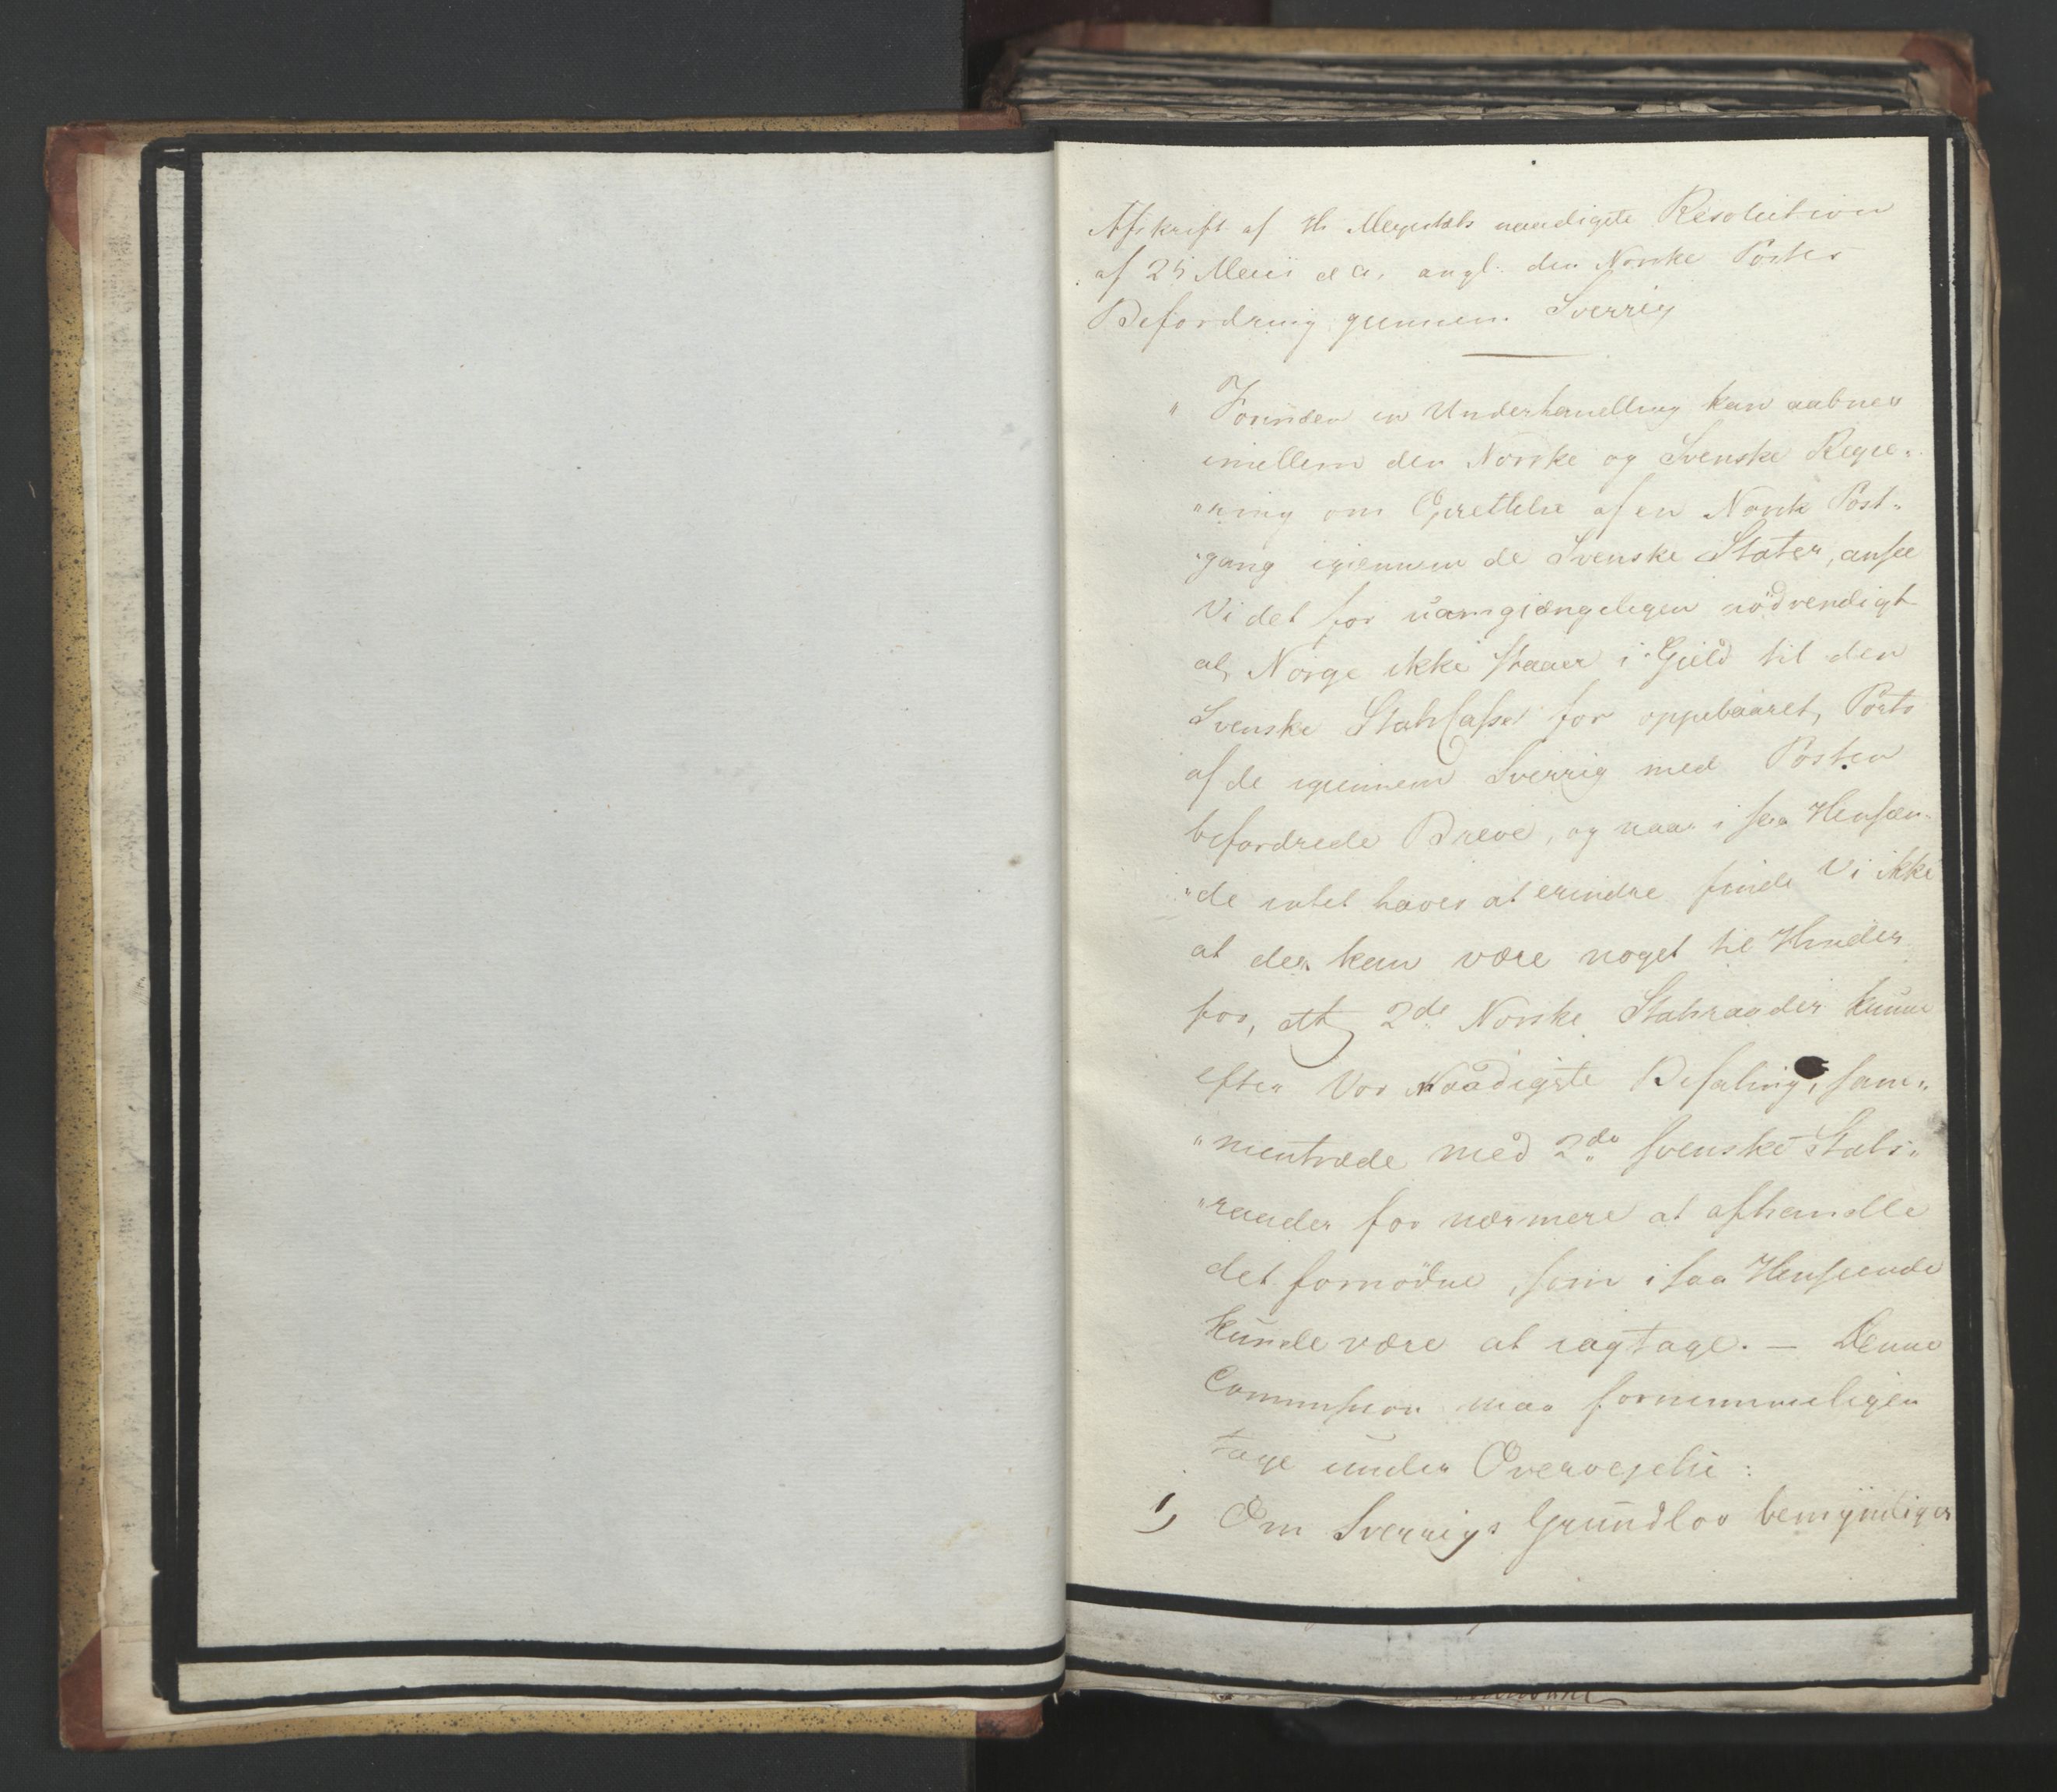 Afskrift af H. Majestæts naadigste Resolution
af 25 Maii d. A. angl. den Norske Postes
Befordring giennem Sverrig
" Forinden en Underhandling kan aabnes
imellem den Norske og Svenske Regie„
"ring om Oprettelse af en Norsk Post„
"gang igiennem de Svenske Stater, ansee
Vi det for uomgiængeligen nödvendigt
at Norge ikke staaer i Gield til den
Svenske StatsCasse for oppebaaret Porto
af de igiennem Sverrig med Posten
befordrede Breve, og naar i saa Henseen„
"de intet haves at erindre finde Vi ikke
at der kan være noget til Hinder
for, at 2de Norske Statsraader kunne
efter Vor Naadigste Befaling, sam„
"mentræde med 2de svenske Stats„
"raader for nærmere at afhandle
det fornödne, som i saa Henseende
kunde være at iagtage. — Denne
Commission maa fornemmeligen
tage under Overveielse:
1) Om Sverrigs Grundlov bemyndiger